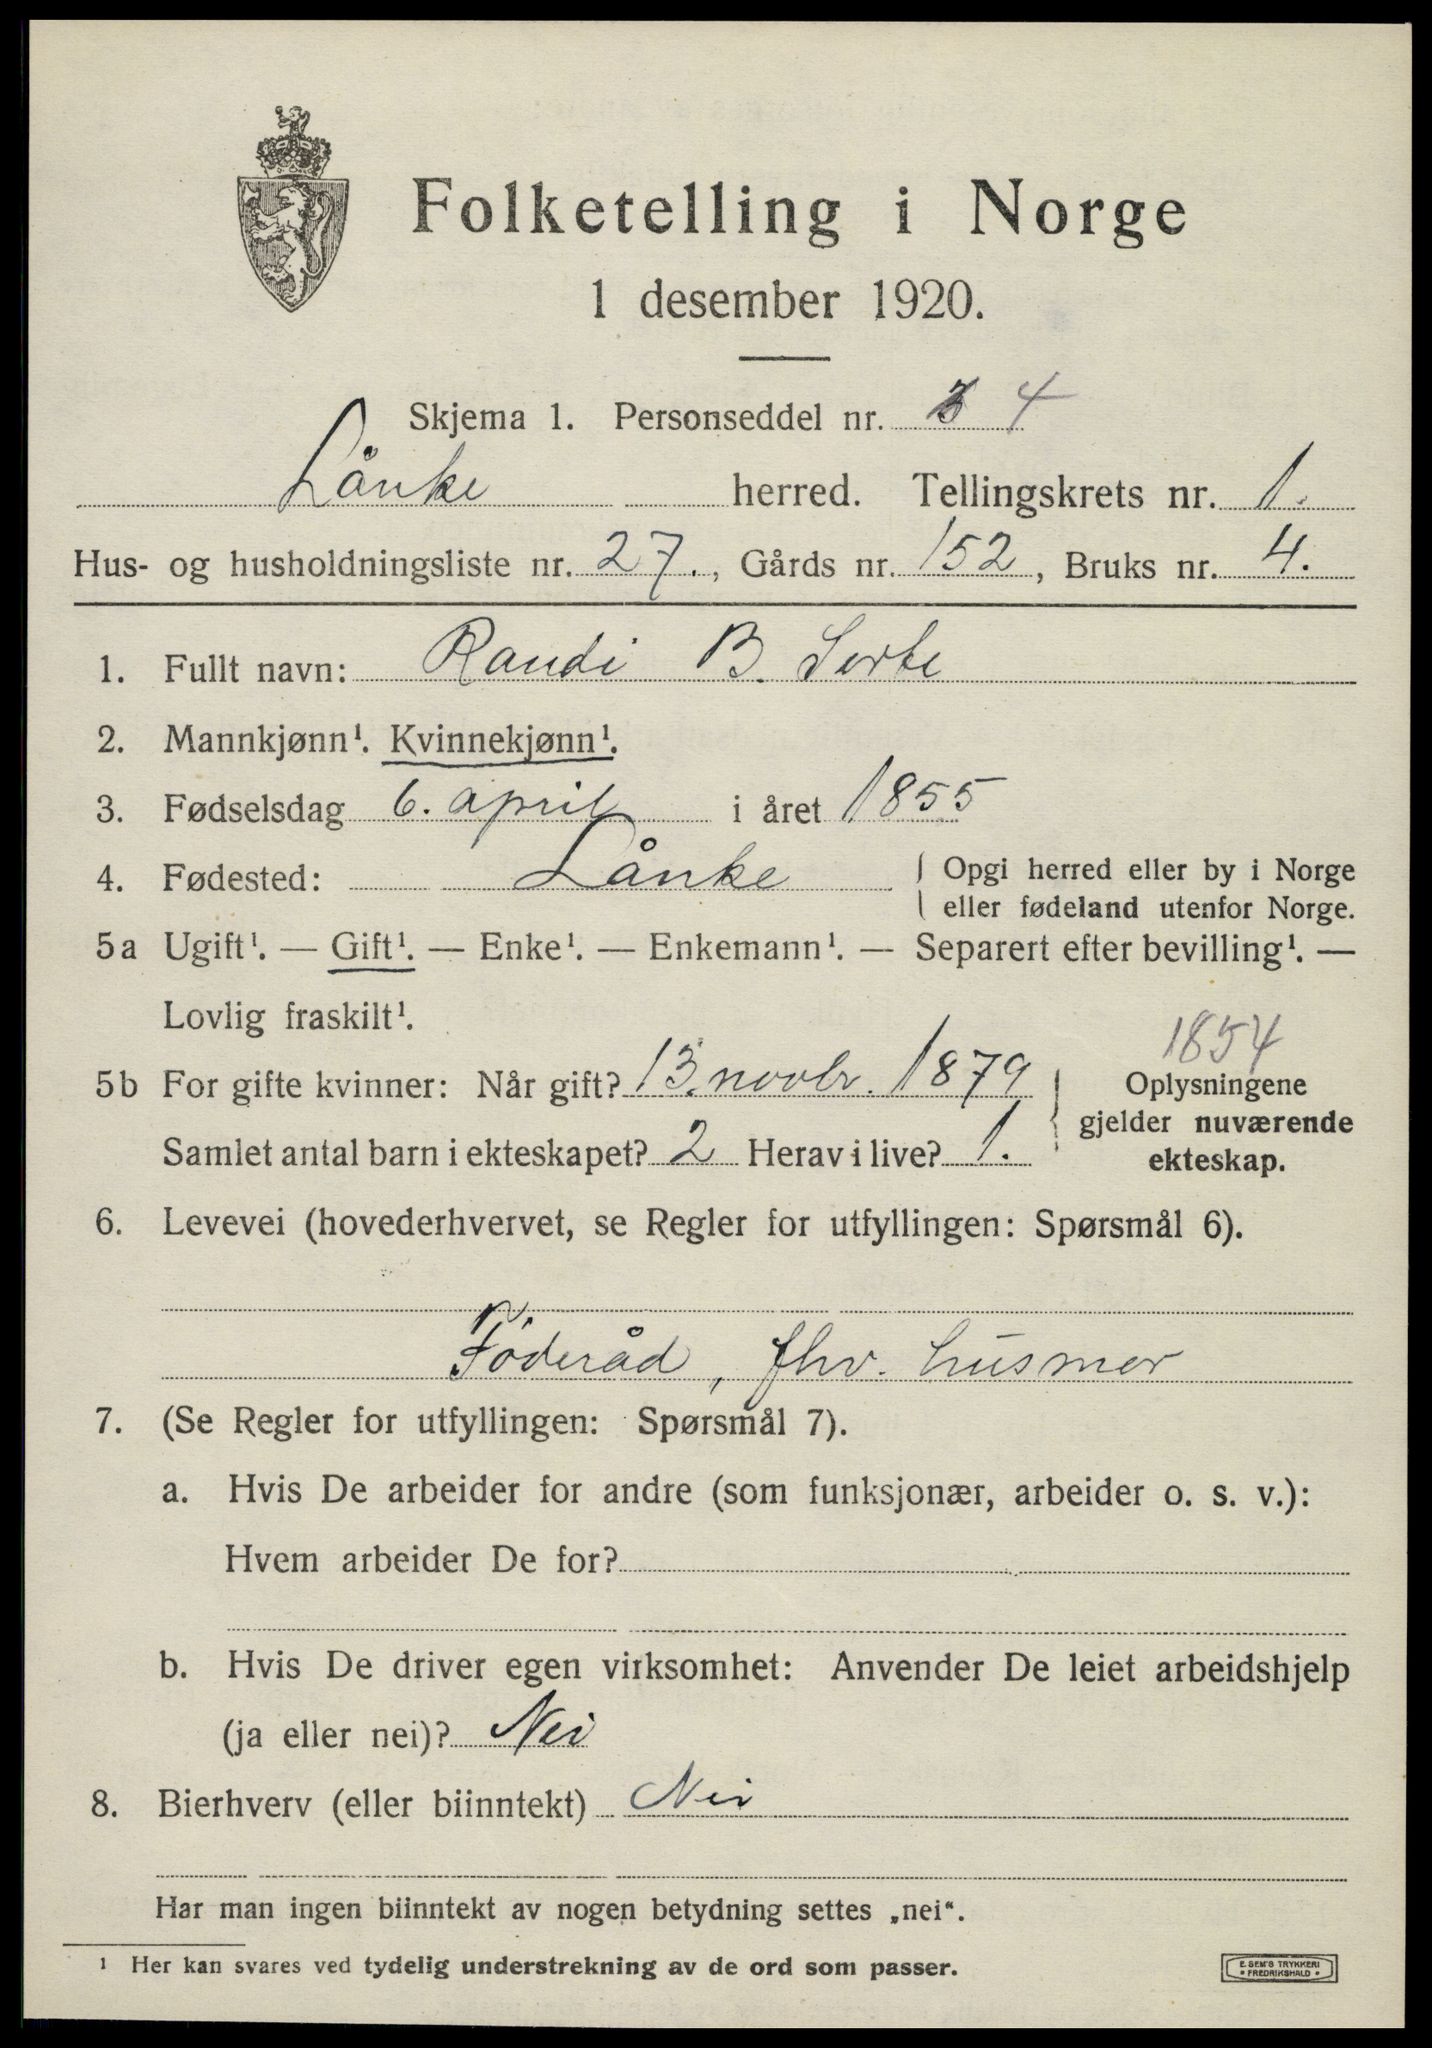 Folketelling i Norge
1 desember 1920.
Skjema 1. Personseddel nr. 4
Lånke herred. Tellingskrets nr. 1.
Hus- og husholdningsliste nr. 27., Gårds nr. 152, Bruks nr. 4.
1. Fullt navn: Randi B.
2. Mannkjønn¹. Kvinnekjønn¹.
3. Fødselsdag 6. april i året 1855
4. Fødested: Lånke { Opgi herred eller by i Norge
eller fødeland utenfor Norge.
5a Ugift¹. — Gift¹. — Enke¹. — Enkemann¹. — Separert efter bevilling¹. —
Lovlig fraskilt¹.
1854
5b For gifte kvinner: Når gift? 13. novbr. 1879 } Oplysningene
gjelder nuværende
Samlet antal barn i ekteskapet? 2 Herav i live? 1.
ekteskap.
6. Levevei (hovederhvervet, se Regler for utfyllingen: Spørsmål 6).
Föderåd, fhv. husmor
7. (Se Regler for utfyllingen: Spørsmål 7).
a. Hvis De arbeider for andre (som funksjonær, arbeider o. s. v.):
Hvem arbeider De for?
b. Hvis De driver egen virksomhet: Anvender De leiet arbeidshjelp
(ja eller nei)? Nei
8. Bierhverv (eller biinntekt) Nei
Har man ingen biinntekt av nogen betydning settes „nei“.
¹ Her kan svares ved tydelig understrekning av de ord som passer.
E. SEM'S TRYKKERI
• FREDRIKSHALD •